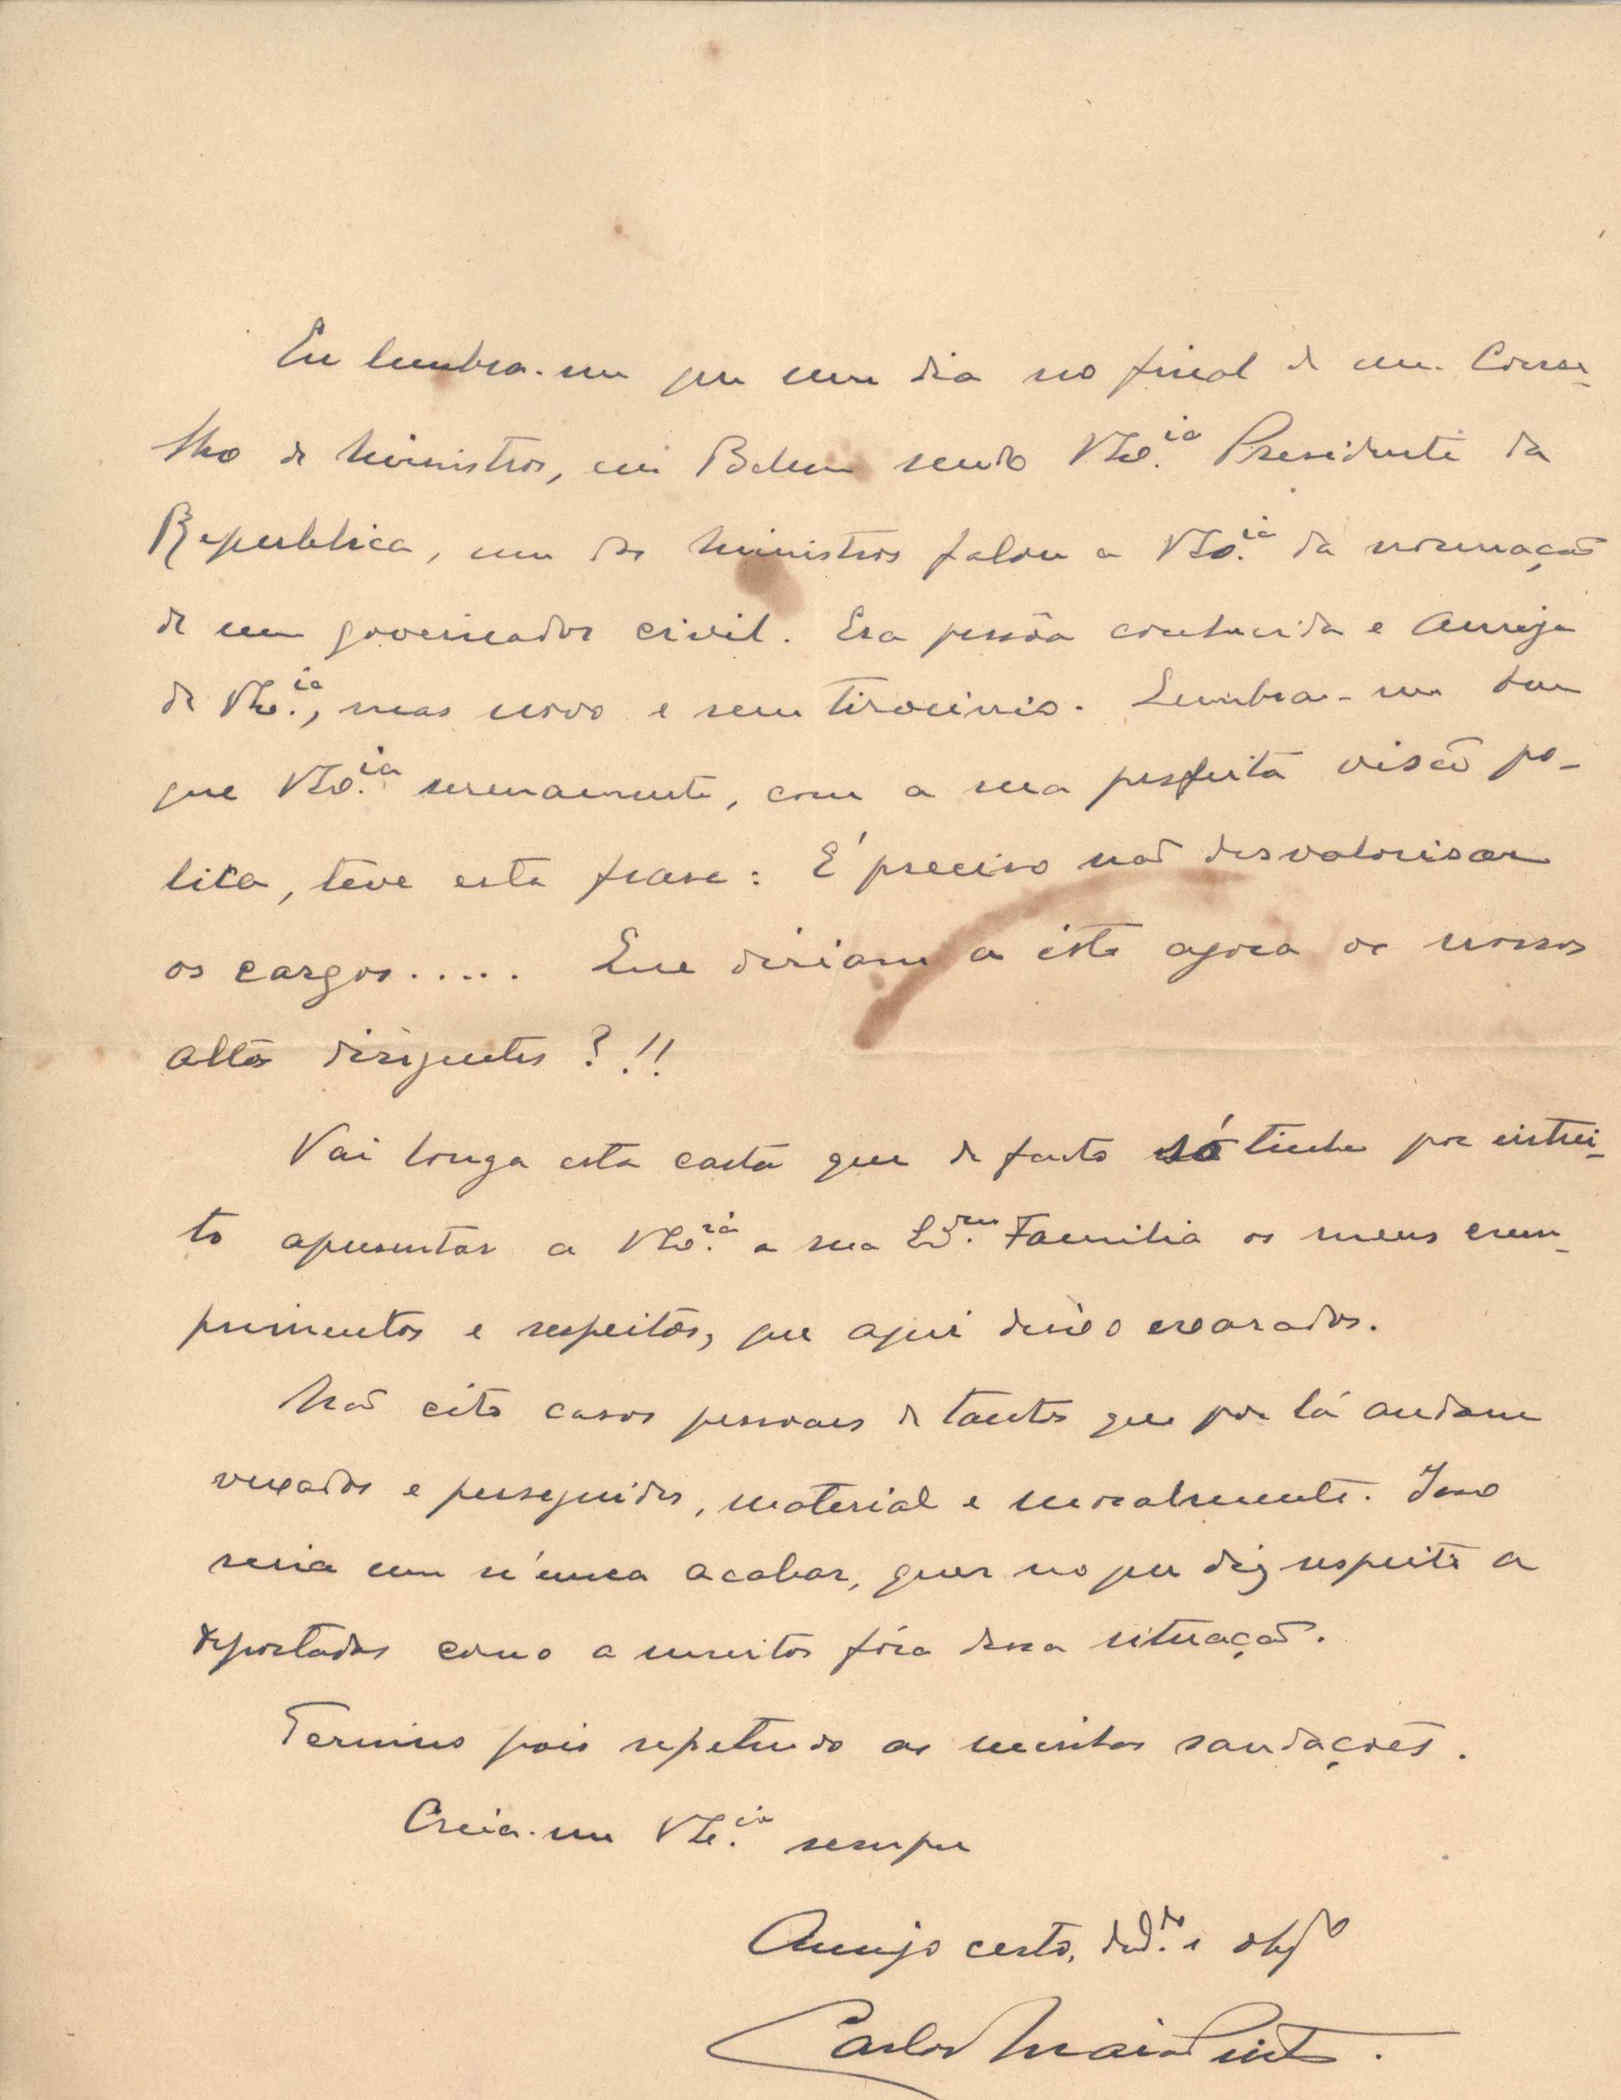 Eu lembra-me que um dia no final de um Conse-
lho de Ministros, em Belem sendo VEx.ia Presidente da
Republica, um dos Ministros falou a VEx.ia da nomeação
de um governador civil. Era pessôa conhecida e amiga
de VEx.ia, mas novo e sem tirocinio. Lembra-me bem
que VEx.ia serenamente, com a sua perfeita visão po-
litica, teve esta frase: É preciso não desvalorisar
os cargos..... Que diriam a isto agora os nossos
altos dirigentes?!!
Vai longa esta carta que de facto só tinha por intui-
to apresentar a VEx.ia e sua Ex.ma Familia os meus cum-
primentos e respeitos, que aqui deixo exarados.
Não cito casos pessoaes de tantos que por lá andam
vexados e perseguidos, material e moralmente. Isso
seria um nunca acabar, quer no que diz respeito a
deportados como a muitos fóra dessa situação.
Termino pois repetindo as minhas saudações.
Creia-me VEx.ia sempre
Amigo certo, ded.do e obgdo
Carlos Maia Pinto.